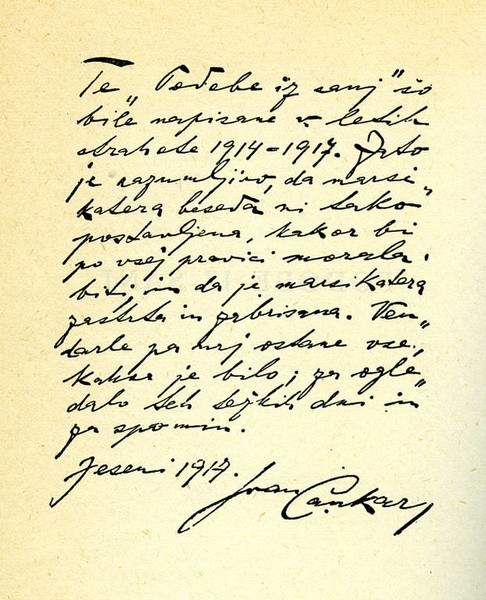 Te „Podobe iz sanj" so
bile napisane v letih
strahote 1914-1917. Zato
je razumljivo, da marsi„
katera beseda ni tako
postavljena, kakor bi
po vsej pravici morala
biti in da je marsikatera
zastrta in zabrisana. Ven„
darle pa naj ostane vse,
kakor je bilo; za ogle„
dalo teh težkih dni in
za spomin.
Jeseni 1917.
Ivan Cankar